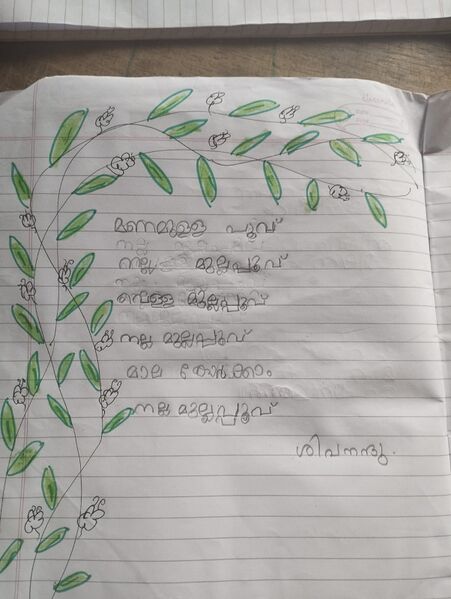 മണമുള്ള പൂവ്
നല്ല മുല്ലപ്പൂവ്
വെള്ള മുല്ലപ്പൂവ്
നല്ല മുല്ലപ്പൂവ്
മാല കോർക്കാം
നല്ല മുല്ലപ്പൂവ്
ശിവനന്ദു.